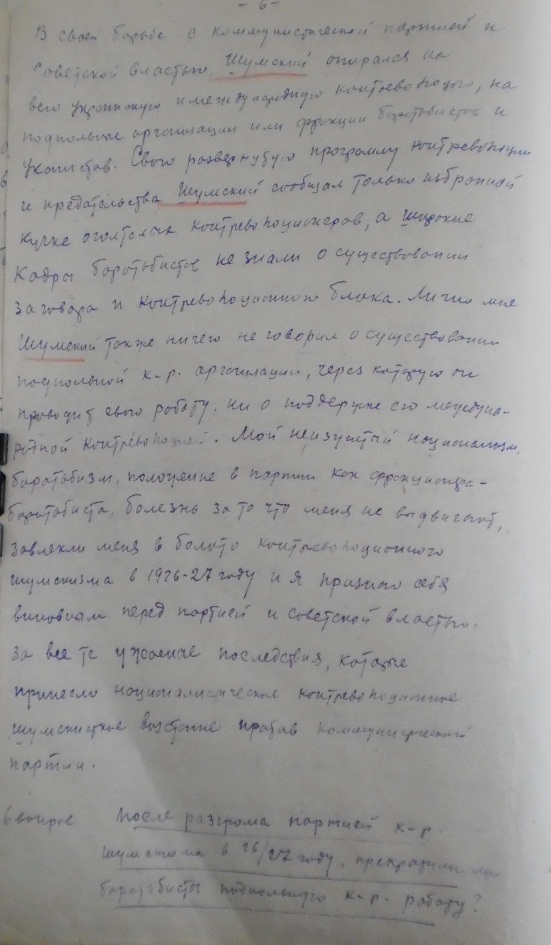 - 6 -
В своей борьбе с коммунистической партией и
Советской властью Шумский опирался на
всю украинскую и международную контрреволюцию, на
подпольные организации или фракции боротьбистов и
укапистов. Свою развернутую программу контрреволюции
и предательства Шумский сообщал только избранной
кучке оголтелых контрреволюционеров, а широкие
кадры боротьбистов не знали о существовании
заговора и контрреволюционного блока. Лично мне
Шумский также ничего не говорил о существовании
подпольной к-р. организации, через которую он
проводит свою работу, ни о поддержке его междуна-
родной контрреволюцией. Мой неизжитый национализм,
боротьбизм, положение в партии как фракционера-
боротьбиста, болезнь за то что меня не выдвигают,
завлекли меня в болото контрреволюционного
шумскизма в 1926-27 году и я признаю себя
виновным перед партией и советской властью.
за все те ужасные последствия, которые
принесло националистическое контрреволюционное
шумскистское восстание против коммунистической
партии.
6 вопрос После разгрома партией к-р.
шумскизма в 26/27 году, прекратили ли
боротьбисты подпольную к-р. работу?